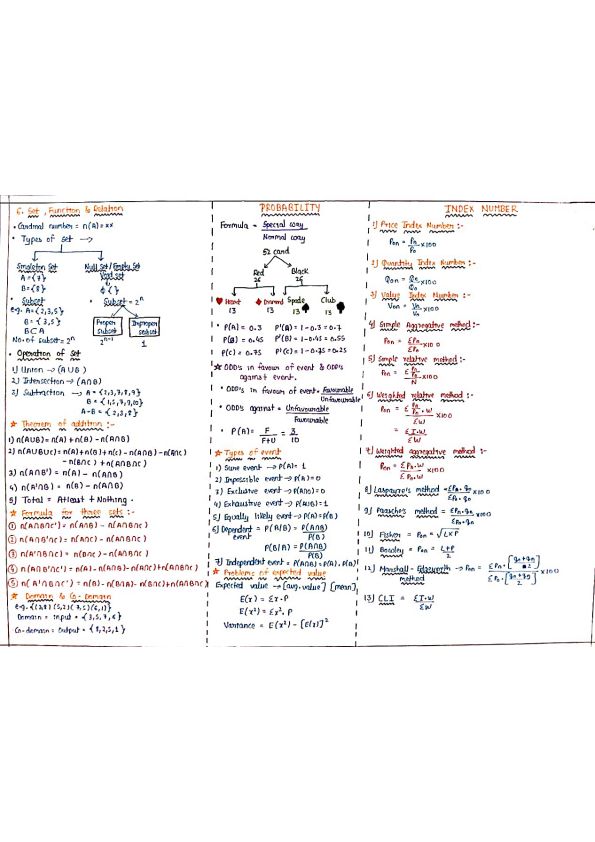 6. Set, Function & Relation
• Cardinal number = n(A) = xx
• Types of set →
Singleton Set
A = {7}
B = {8}
Null Set / Empty Set
Void set
{ }
• Subset
e.g. A = {2,3,5}
B = {3,5}
B C A
No. of subset = 2^n
• Subset = 2^n
Proper subset
2^n-1
Improper subset
1
• Operation of Set
1) Union → (A∪B)
2) Intersection → (A∩B)
3) Subtraction → A = {2,3,7,8,9}
B = {1,5,7,9,10}
A-B = {2,3,8}
★ Theorem of addition :-
1) n(A∪B) = n(A) + n(B) - n(A∩B)
2) n(A∪B∪C) = n(A)+n(B)+n(C) - n(A∩B) - n(A∩C)
- n(B∩C) + n(A∩B∩C)
3) n(A∩B') = n(A) - n(A∩B)
4) n(A'∩B) = n(B) - n(A∩B)
5) Total = Atleast + Nothing.
★ Formula for three sets :-
① n(A∩B∩C') = n(A∩B) - n(A∩B∩C)
③ n(A'∩B∩C) = n(B∩C) - n(A∩B∩C)
⑤ n(A'∩B∩C') = n(B) - n(B∩A) - n(B∩C) + n(A∩B∩C)
★ Domain & Co-Domain
Domain = input = {3,5,7,6}
Co-domain = output = {8,2,5,1}
PROBABILITY
Formula = Special way
Normal way
52 card
Red
26
Black
26
Heart
13
Diamond
13
Spade
13
Club
13
• P(A) = 0.3 P'(A) = 1-0.3 = 0.7
P(B) = 0.45 P'(B) = 1-0.45 = 0.55
P(C) = 0.75 P'(C) = 1-0.75 = 0.25
★ ODD's in favour of event & ODD's
against event.
• ODD's in favour of event = Favourable
Unfavourable
• ODD's against = Unfavourable
Favourable
• P(A) = F = 3
F+U 10
★ Types of event
1) Sure event → P(A) = 1
2) Impossible event → P(A) = 0
3) Exclusive event → P(A∩B) = 0
4) Exhaustive event → P(A∪B) = 1
5) Equally likely event → P(A) = P(B)
6) Dependent event = P(A/B) = P(A∩B)
P(B)
P(B/A) = P(A∩B)
P(B)
7) Independent event = P(A∩B) = P(A).P(B)
★ Problems of expected value
Expected value → [avg. value] [mean]
E(x) = Σx.P
E(x²) = Σx².P
Variance = E(x²) - [E(x)]²
INDEX NUMBER
1) Price Index Number :-
Pon = Pn/Po ×100
2) Quantity Index Number :-
Qon = Qn/Qo ×100
3) Value Index Number :-
Von = Vn/Vo ×100
4) Simple Aggregative method :-
Pon = ΣPn/ΣPo ×100
5) Simple relative method :-
6) Weighted relative method :-
= ΣI.W
ΣW
7) Weighted aggregative method :-
Pon = ΣPn.W/ΣPo.W ×100
8) Laspeyre's method = ΣPn.qo/ΣPo.qo ×100
9) Paasche's method = ΣPn.qn/ΣPo.qn ×100
10) Fisher = Pon = √L×P
11) Bowley = Pon = L+P
2
12) Marshall - Edgeworth method → Pon =
13) CLI = ΣI.W
ΣW